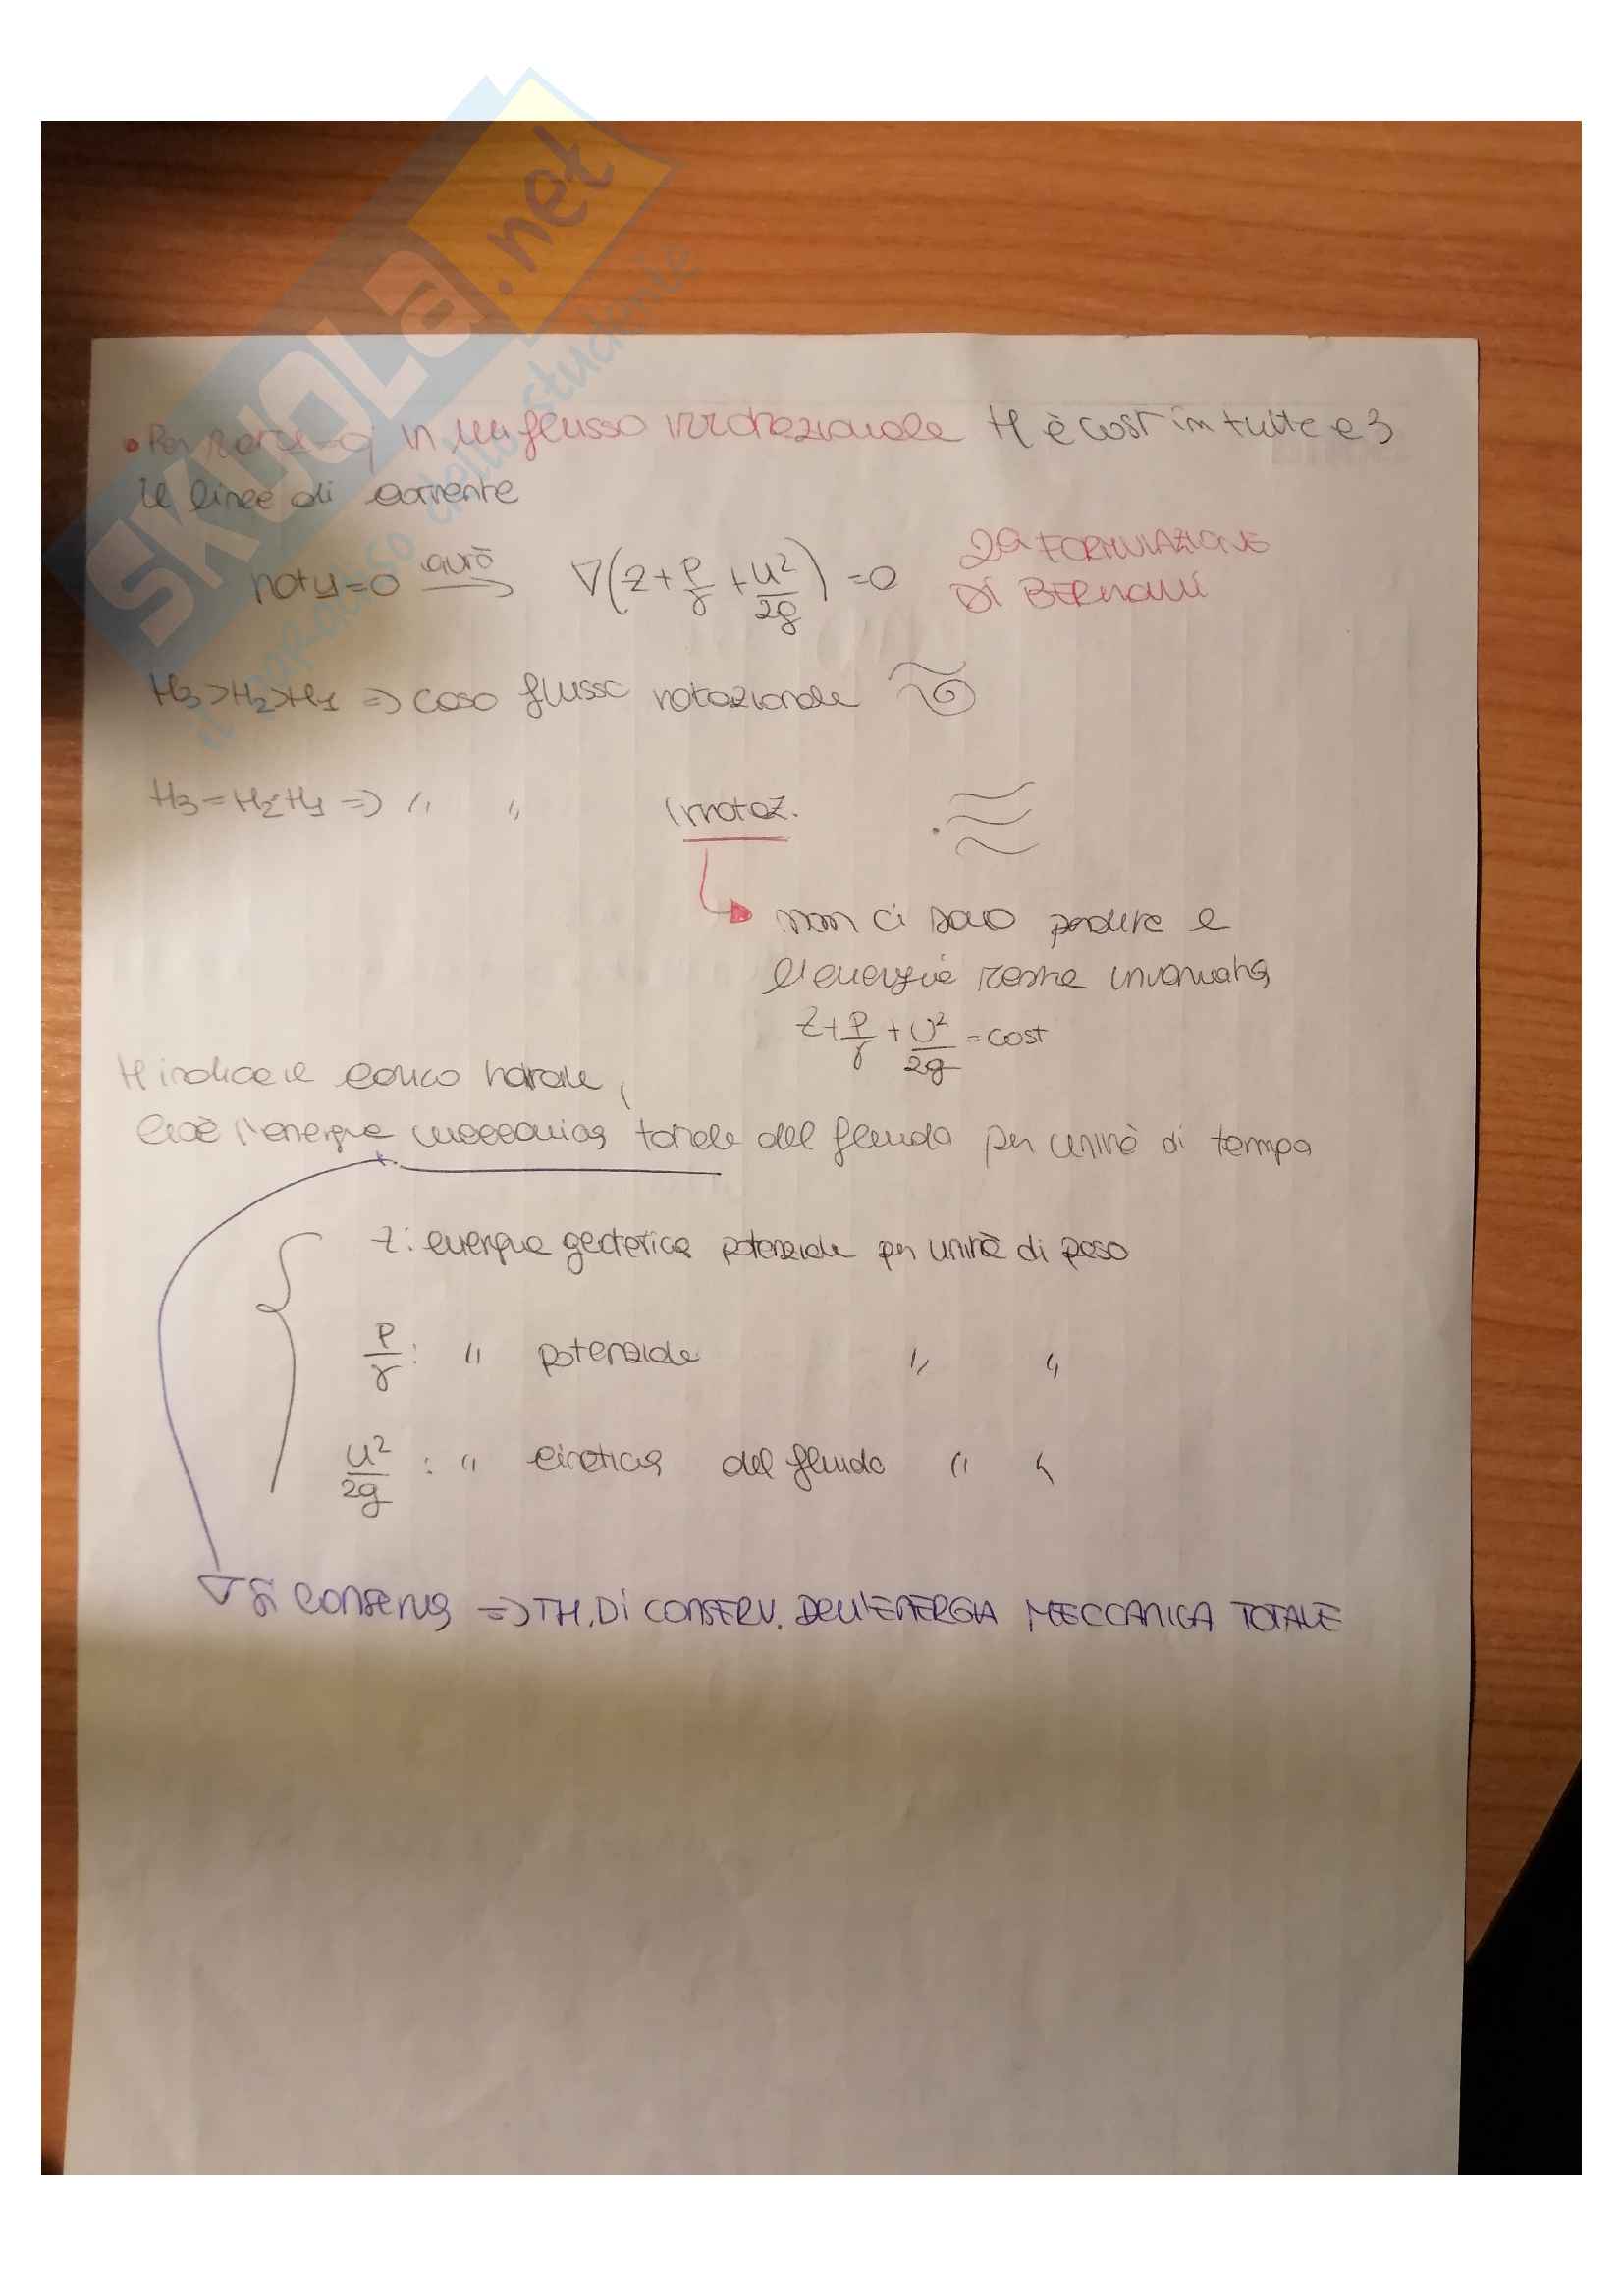 SKUOLa.net
il paradiso dello studente
• Per in un flusso irrotazionale H è cost in tutte e 3
le linee di corrente
rot u=0 avrò → ∇(z+P/γ+u²/2g)=0 2ª FORMULAZIONE
DI BERNOULLI
H3>H2>H1 => caso flusso rotazionale
H3=H2=H1 => " " irrotaz.
non ci sono perdite e
l'energia resta invariata
z+P/γ+U²/2g=cost
H indica il carico totale,
cioè l'energia meccanica totale del fluido per unità di tempo
z: energia geodetica potenziale per unità di peso
P/γ: " potenziale " "
u²/2g: " cinetica del fluido " "
si conserva => TH. DI CONSERV. DELL'ENERGIA MECCANICA TOTALE